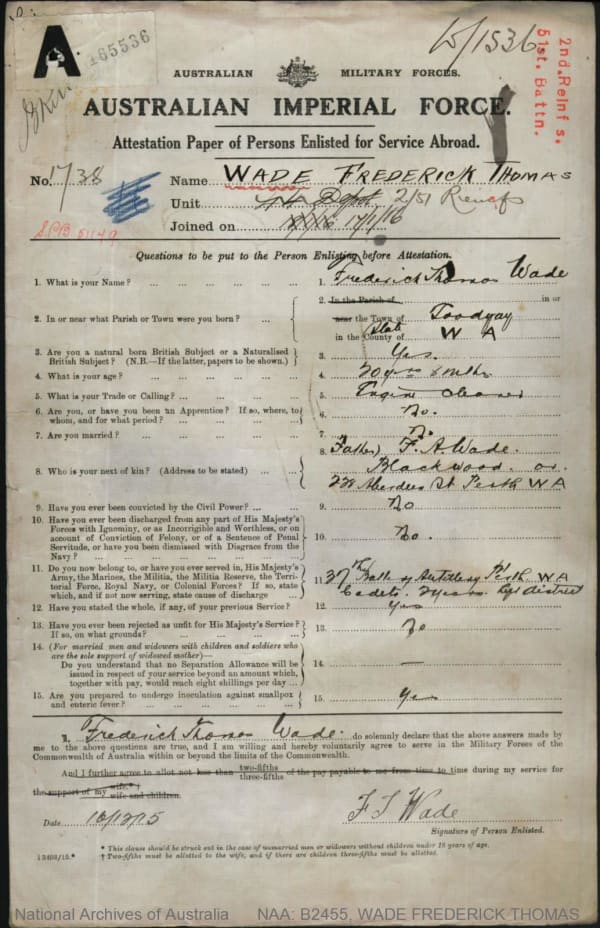 A
165536
15/1536
2nd. Reinfs.
51st. Battn.
AUSTRALIAN MILITARY FORCES.
AUSTRALIAN IMPERIAL FORCE.
Attestation Paper of Persons Enlisted for Service Abroad.
No. 1738 Name WADE FREDERICK THOMAS
Unit Depot 2/51 Reinfs
Joined on 17/1/16
Questions to be put to the Person Enlisting before Attestation.
1. What is your Name? ... 1. Frederick Thomas Wade
2. In or near what Parish or Town were you born? ... 2. In the Parish of in or
near the Town of Toodyay
in the County of State W A
3. Are you a natural born British Subject or a Naturalised
British Subject? (N.B.—If the latter, papers to be shown.) 3. Yes.
4. What is your age? ... 4. 20 yrs 8 mths
5. What is your Trade or Calling? ... 5. Engine Cleaner
6. Are you, or have you been an Apprentice? If so, where, to
whom, and for what period? ... 6. No.
7. Are you married? ... 7. No.
8. Who is your next of kin? (Address to be stated) ... 8. Father) F. A. Wade.
Blackwood. or.
Aberdeen St Perth WA
9. Have you ever been convicted by the Civil Power? ... 9. No
10. Have you ever been discharged from any part of His Majesty's
Forces with Ignominy, or as Incorrigible and Worthless, or on
account of Conviction of Felony, or of a Sentence of Penal
Servitude, or have you been dismissed with Disgrace from the
Navy? ... 10. No.
11. Do you now belong to, or have you ever served in, His Majesty's
Army, the Marines, the Militia, the Militia Reserve, the Terri-
torial Force, Royal Navy, or Colonial Forces? If so, state
which, and if not now serving, state cause of discharge 11. 37th Batty Artillery Perth WA
Cadets. 2 years. left district
12. Have you stated the whole, if any, of your previous Service? 12. Yes
13. Have you ever been rejected as unfit for His Majesty's Service?
If so, on what grounds? ... 13. No
14. (For married men and widowers with children and soldiers who
are the sole support of widowed mother)—
Do you understand that no Separation Allowance will be
issued in respect of your service beyond an amount which,
together with pay, would reach eight shillings per day ... 14. —
15. Are you prepared to undergo inoculation against smallpox
and enteric fever? ... 15. Yes
I, Frederick Thomas Wade do solemnly declare that the above answers made by
me to the above questions are true, and I am willing and hereby voluntarily agree to serve in the Military Forces of the
Commonwealth of Australia within or beyond the limits of the Commonwealth.
And I further agree to allot not less than two-fifths three-fifths of the pay payable to me from time to time during my service for
the support of my wife.* † wife and children.
Date 10/12/15 F T Wade
Signature of Person Enlisted.
* This clause should be struck out in the case of unmarried men or widowers without children under 18 years of age.
13408/15.* † Two-fifths must be allotted to the wife, and if there are children three-fifths must be allotted.
National Archives of Australia NAA: B2455, WADE FREDERICK THOMAS